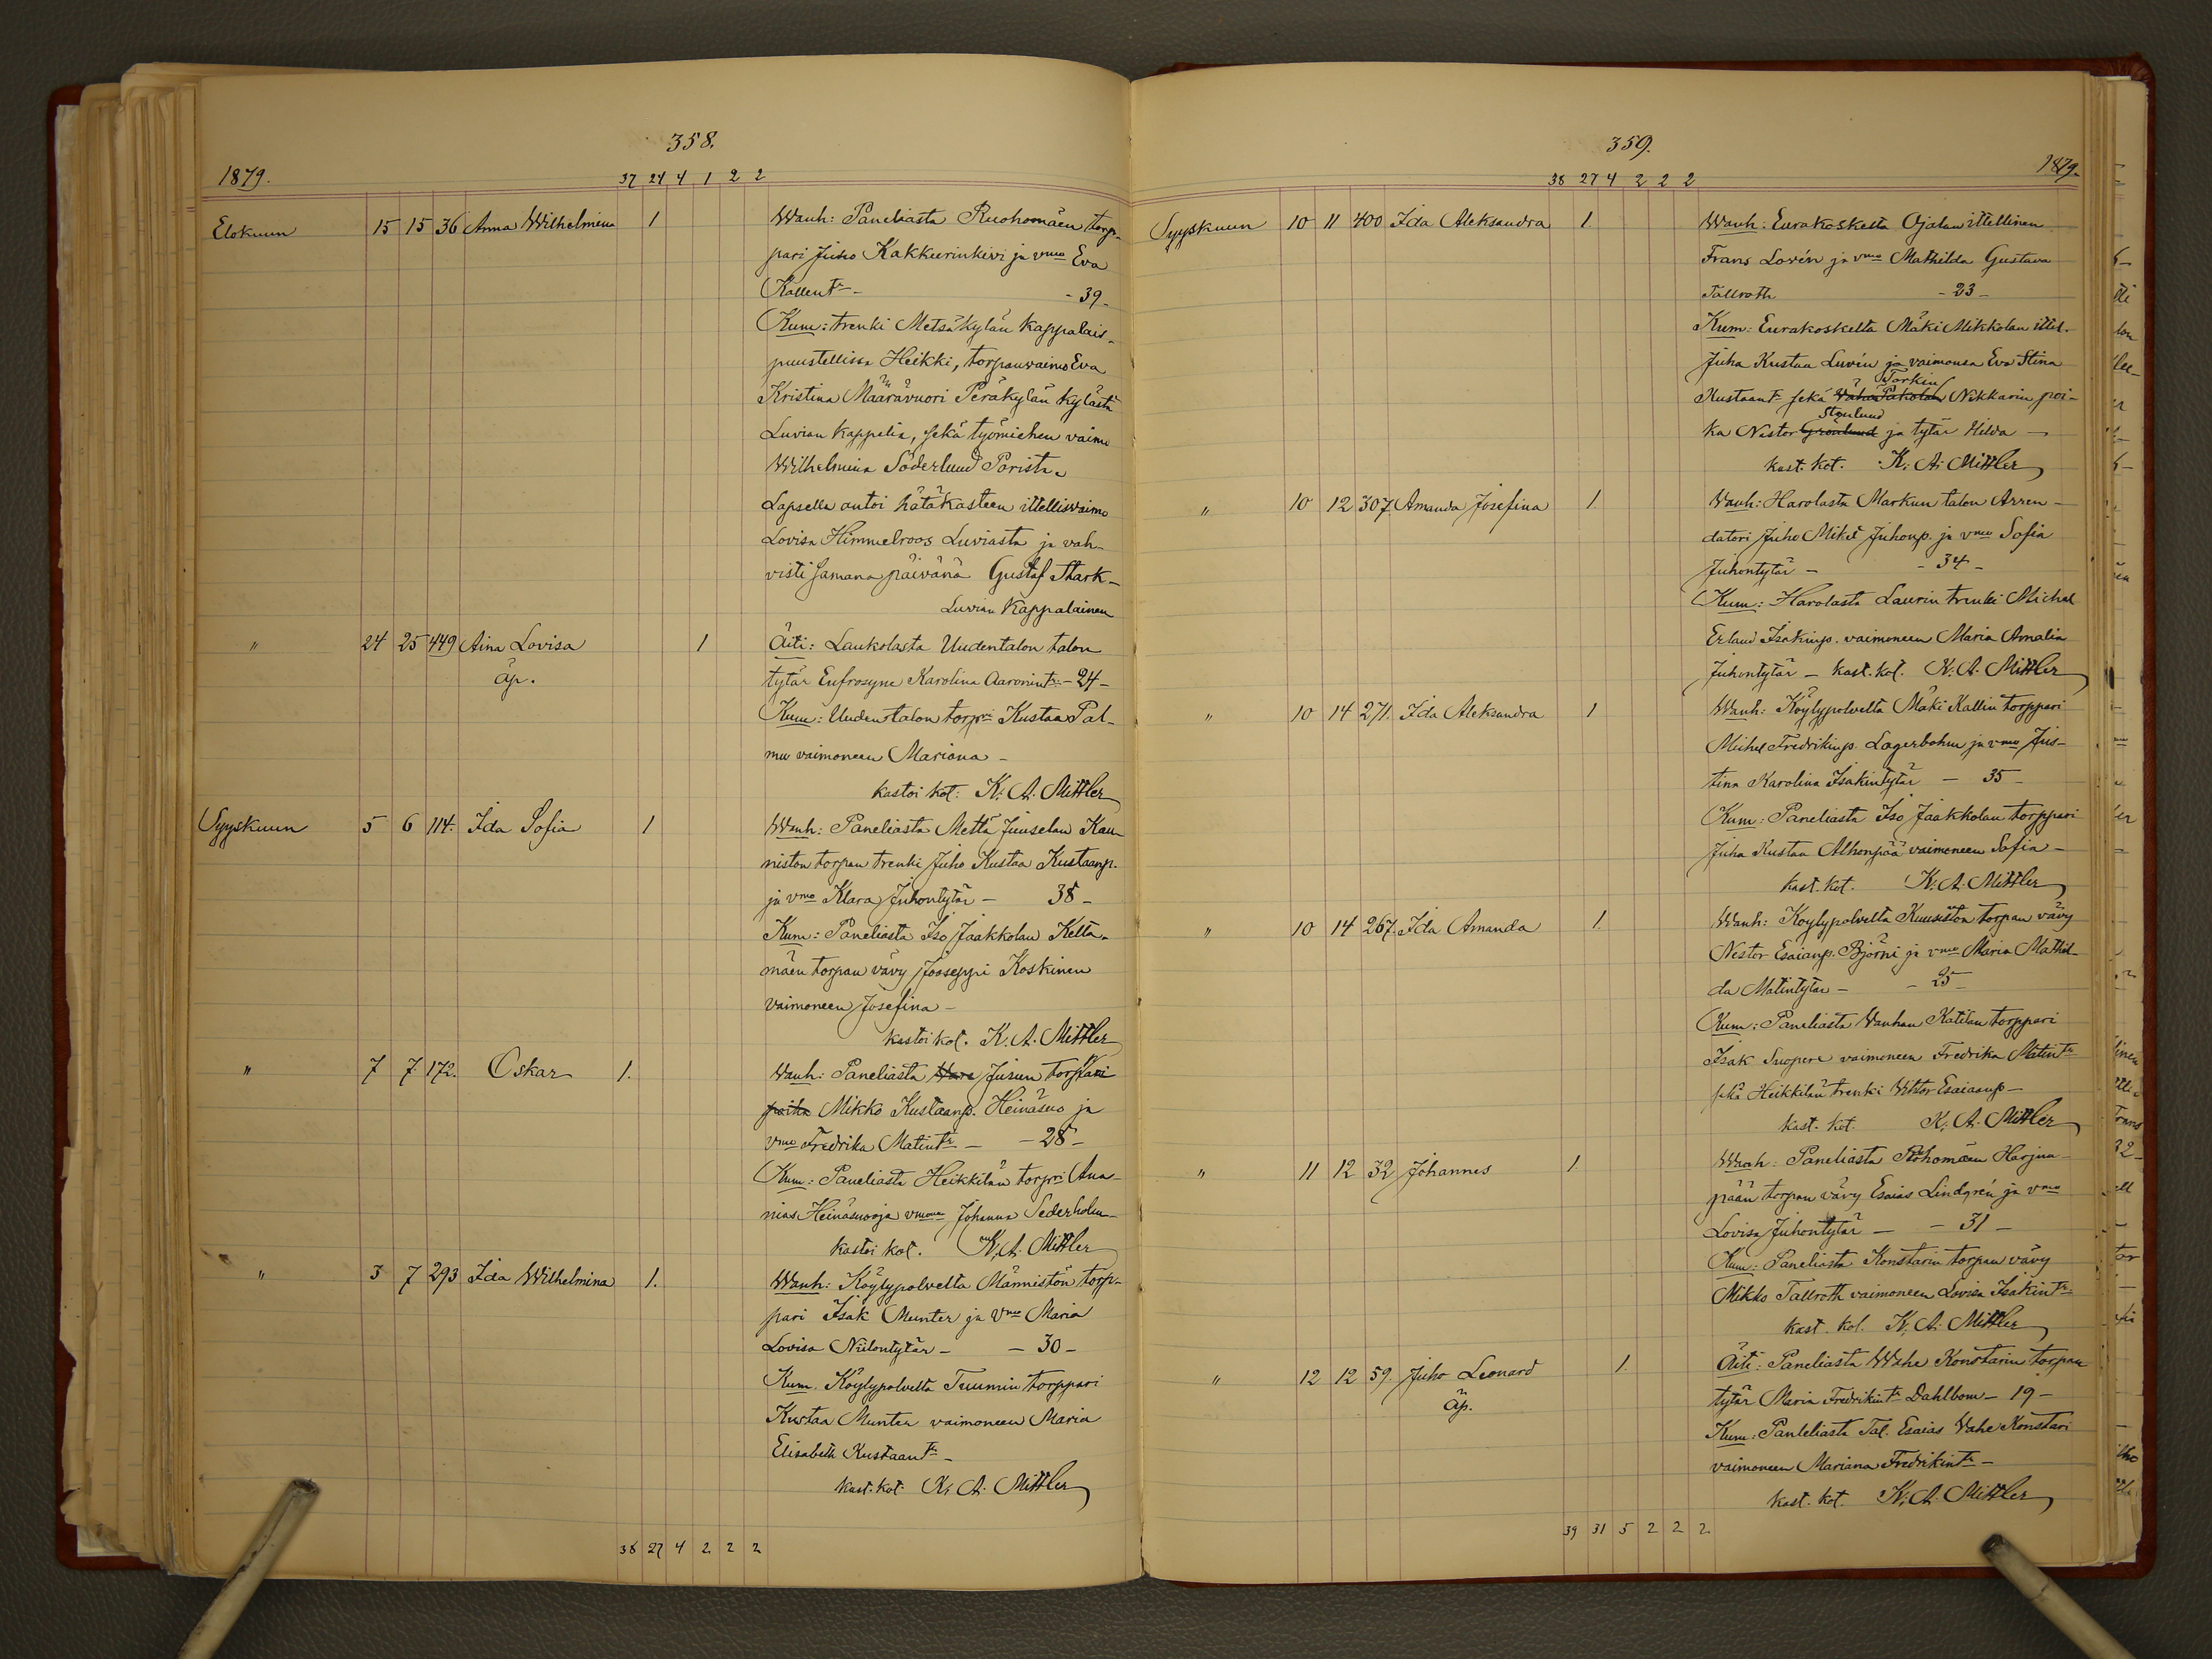 358.
1879.
37 24 4 1 2 2
Elokuun 15 15 36 Anna Wilhelmina 1 Wanh: Paneliasta Ruohomäen torp-
pari Juho Kakkurinkivi ja vmo Eva
Kallent. - - 39 -
Kum: trenki Metsäkylän Kappalais-
puustellissa Heikki, torpanvaimo Eva
Kristina Määrävuori Peräkylän kylästä
Luvian kappelia, sekä työmiehen vaimo
Wilhelmina Söderlund Porista.
Lapselle antoi hätäkasteen ittellisvaimo
Lovisa Himmelroos Luviasta ja vah-
visti samana päivänä Gustaf Stark -
Luvian Kappalainen
" 24 25 449 Aina Lovisa 1 Äiti: Laukolasta Uudentalon talon
äp. tytär Eufrosyne Karolina Aaronint. - 24 -
Kum: Uudentalon torpri Kustaa Pal-
mu vaimoneen Mariana -
kastoi kot: K. A. Mittler
Syyskuun 5 6 114. Ida Sofia 1 Wanh: Paneliasta Mettä Juuselan Kau-
niston torpan trenki Juho Kustaa Kustaanp.
ja vmo Klara Juhontytär - 38 -
Kum: Paneliasta Iso Jaakkolan Ketta-
mäen torpan vävy Jooseppi Koskinen
vaimoneen Josefina -
kastoi kot. K. A. Mittler
" 7 7 172. Oskar 1. Wanh: Paneliasta Jusun torppari
poika Mikko Kustaanp. Heinäsuo ja
vmo Fredrika Matint. - - 28 -
Kum: Paneliasta Heikkilän torpri Ana-
nias Heinäsuo ja Johanna Sederholm
kastoi kot. K. A. Mittler
" 3 7 293 Ida Wilhelmina 1. Wanh: Köylypolvelta Männistön torp-
pari Isak Munter ja vmo Maria
Lovisa Niilontytär - - 30 -
Kum. Köylypolvelta Tuumin torppari
Kustaa Munter vaimoneen Maria
Elisabeth Kustaant. -
kast. kot. K. A. Mittler
38 27 4 2 2 2
359.
1879.
38 27 4 2 2 2
Syyskuun 10 11 400 Ida Aleksandra 1. Wanh: Eurakoskelta Ojalan ittellinen
Frans Lovén ja vmo Mathilda Gustava
Tallroth - 23 -
Kum: Eurakoskelta Mäki Mikkolan ittel.
Juha Kustaa Luvén ja vaimonsa Eva Stina
Torkin
Kustaant. sekä Vähä Pakolan Nikkarin poi-
Stenlund
ka Nestor Grönlund ja tytär Hilda -
kast. kot. K. A. Mittler
" 10 12 307. Amanda Josefina 1. Wanh: Harolasta Markun talon Arren-
datori Juho Mikel Juhonp. ja vmo Sofia
Juhontytär - - 34 -
Kum: Harolasta Laurin trenki Michel
Erland Isakinp. vaimoneen Maria Amalia
Juhontytär - kast. kot. K. A. Mittler
" 10 14 271. Ida Aleksandra 1 Wanh: Köylypolvelta Mäki Kallin torppari
Michel Fredrikinp. Lagerbohm ja vmo Jus-
tina Karolina Isakintytär - 35 -
Kum: Paneliasta Iso Jaakkolan torppari
Juha Kustaa Alhonpää vaimoneen Sofia -
kast. kot. K. A. Mittler
" 10 14 267. Ida Amanda 1. Wanh: Köylypolvelta Kuusiston torpan vävy
Nestor Esaianp. Björni ja vmo Maria Mathil-
da Matintytär - - 25 -
Kum: Paneliasta Vanhan Katilan torppari
Isak Suopere vaimoneen Fredrika Matint.
sekä Heikkilän trenki Viktor Esaiaanp -
kast. kot. K. A. Mittler
" 11 12 32 Johannes 1 Wanh: Paneliasta Harjun-
pään torpan vävy Esaias Lindgrén ja vmo
Lovisa Juhontytär - - 31 -
Kum: Paneliasta Konstarin torpan vävy
Mikko Tallroth vaimoneen Lovisa Isakint.
kast. kot. K. A. Mittler
" 12 12 59. Juho Leonard 1. Äiti: Paneliasta Wähe Konstarin torpan
äp. tytär Maria Fredrikint. Dahlbom - 19 -
Kum: Panleliasta Tal. Esaias Vähe Konstari
vaimoneen Mariana Fredrikint. -
kast. kot. K. A. Mittler
39 31 5 2 2 2